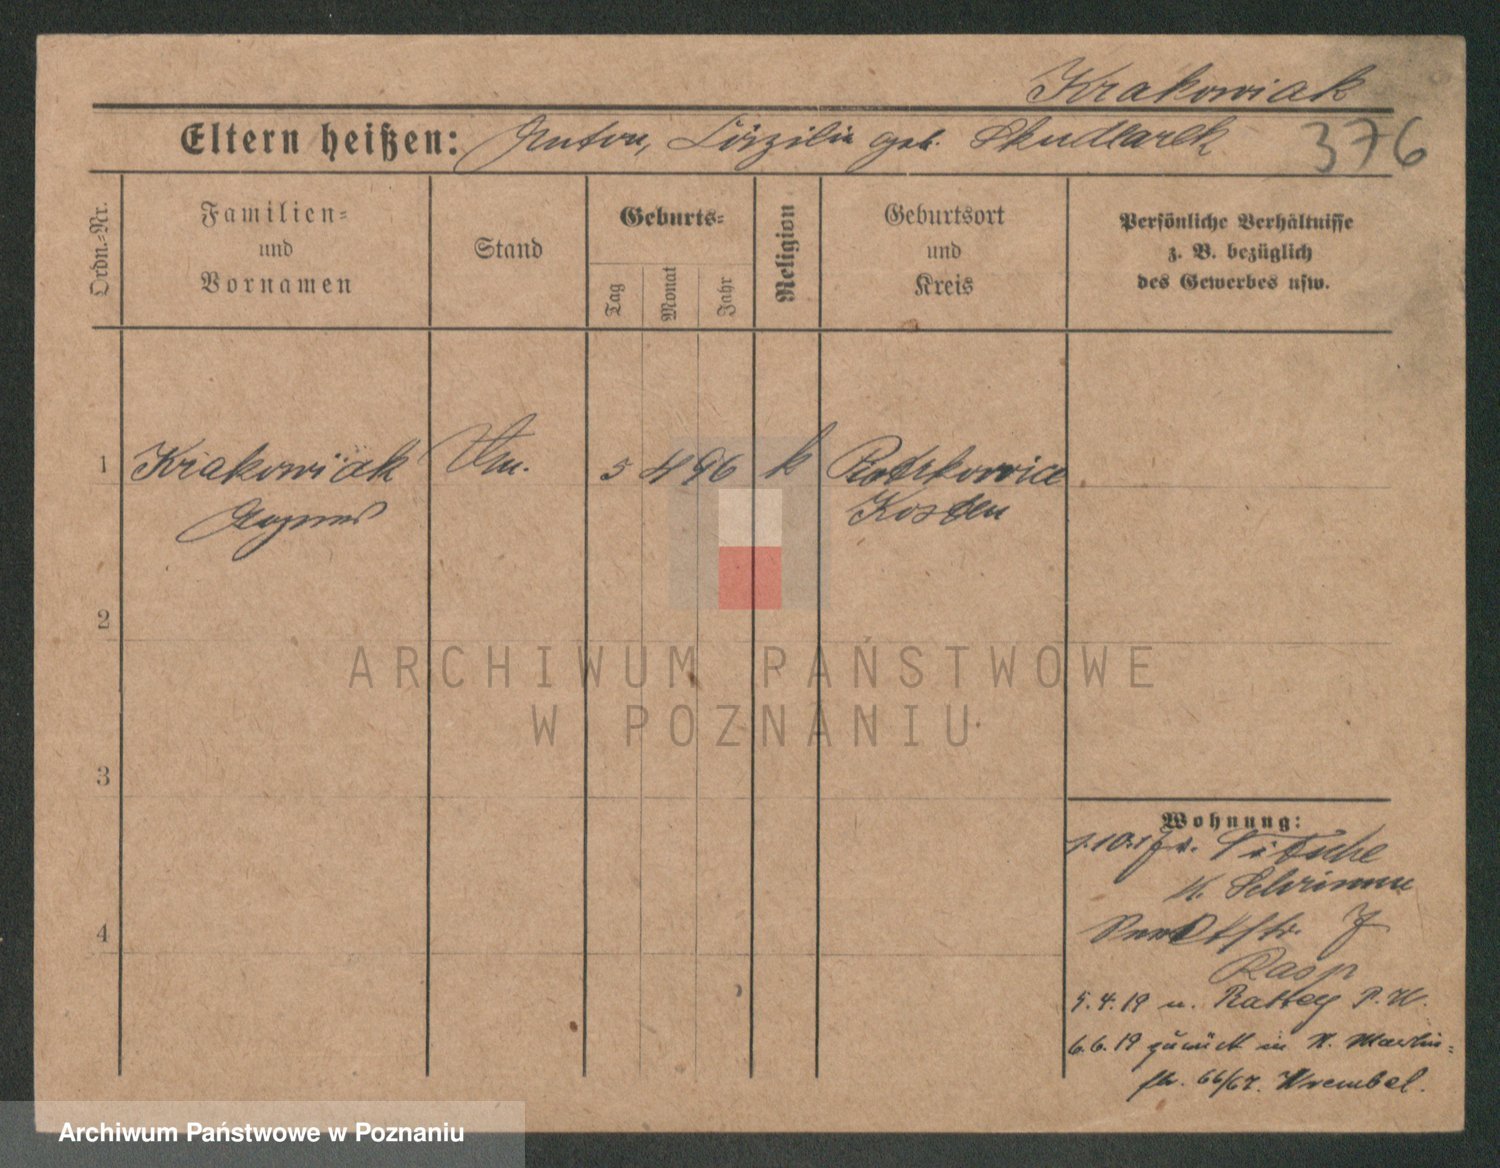 Krakowiak
Eltern heißen: Anton, Cäzilie geb. Skudlarek 376
Ordn.-Nr.
Familien-
und
Vornamen
Stand
Geburts-
Tag
Monat
Jahr
Religion
Geburtsort
und
Kreis
Persönliche Verhältnisse
z. B. bezüglich
des Gewerbes usw.
1 Krakowiak 5 4 96 k Piotrkowice
Agnes Kosten
2
3
4
ARCHIWUM PAŃSTWOWE
W POZNANIU
Wohnung:
K. Schrimm
7
Rasp
5.4.19 n. Rattey P. W.
6.6.19 zurück in N. Martin-
str. 66/67. Krembel.
Archiwum Państwowe w Poznaniu